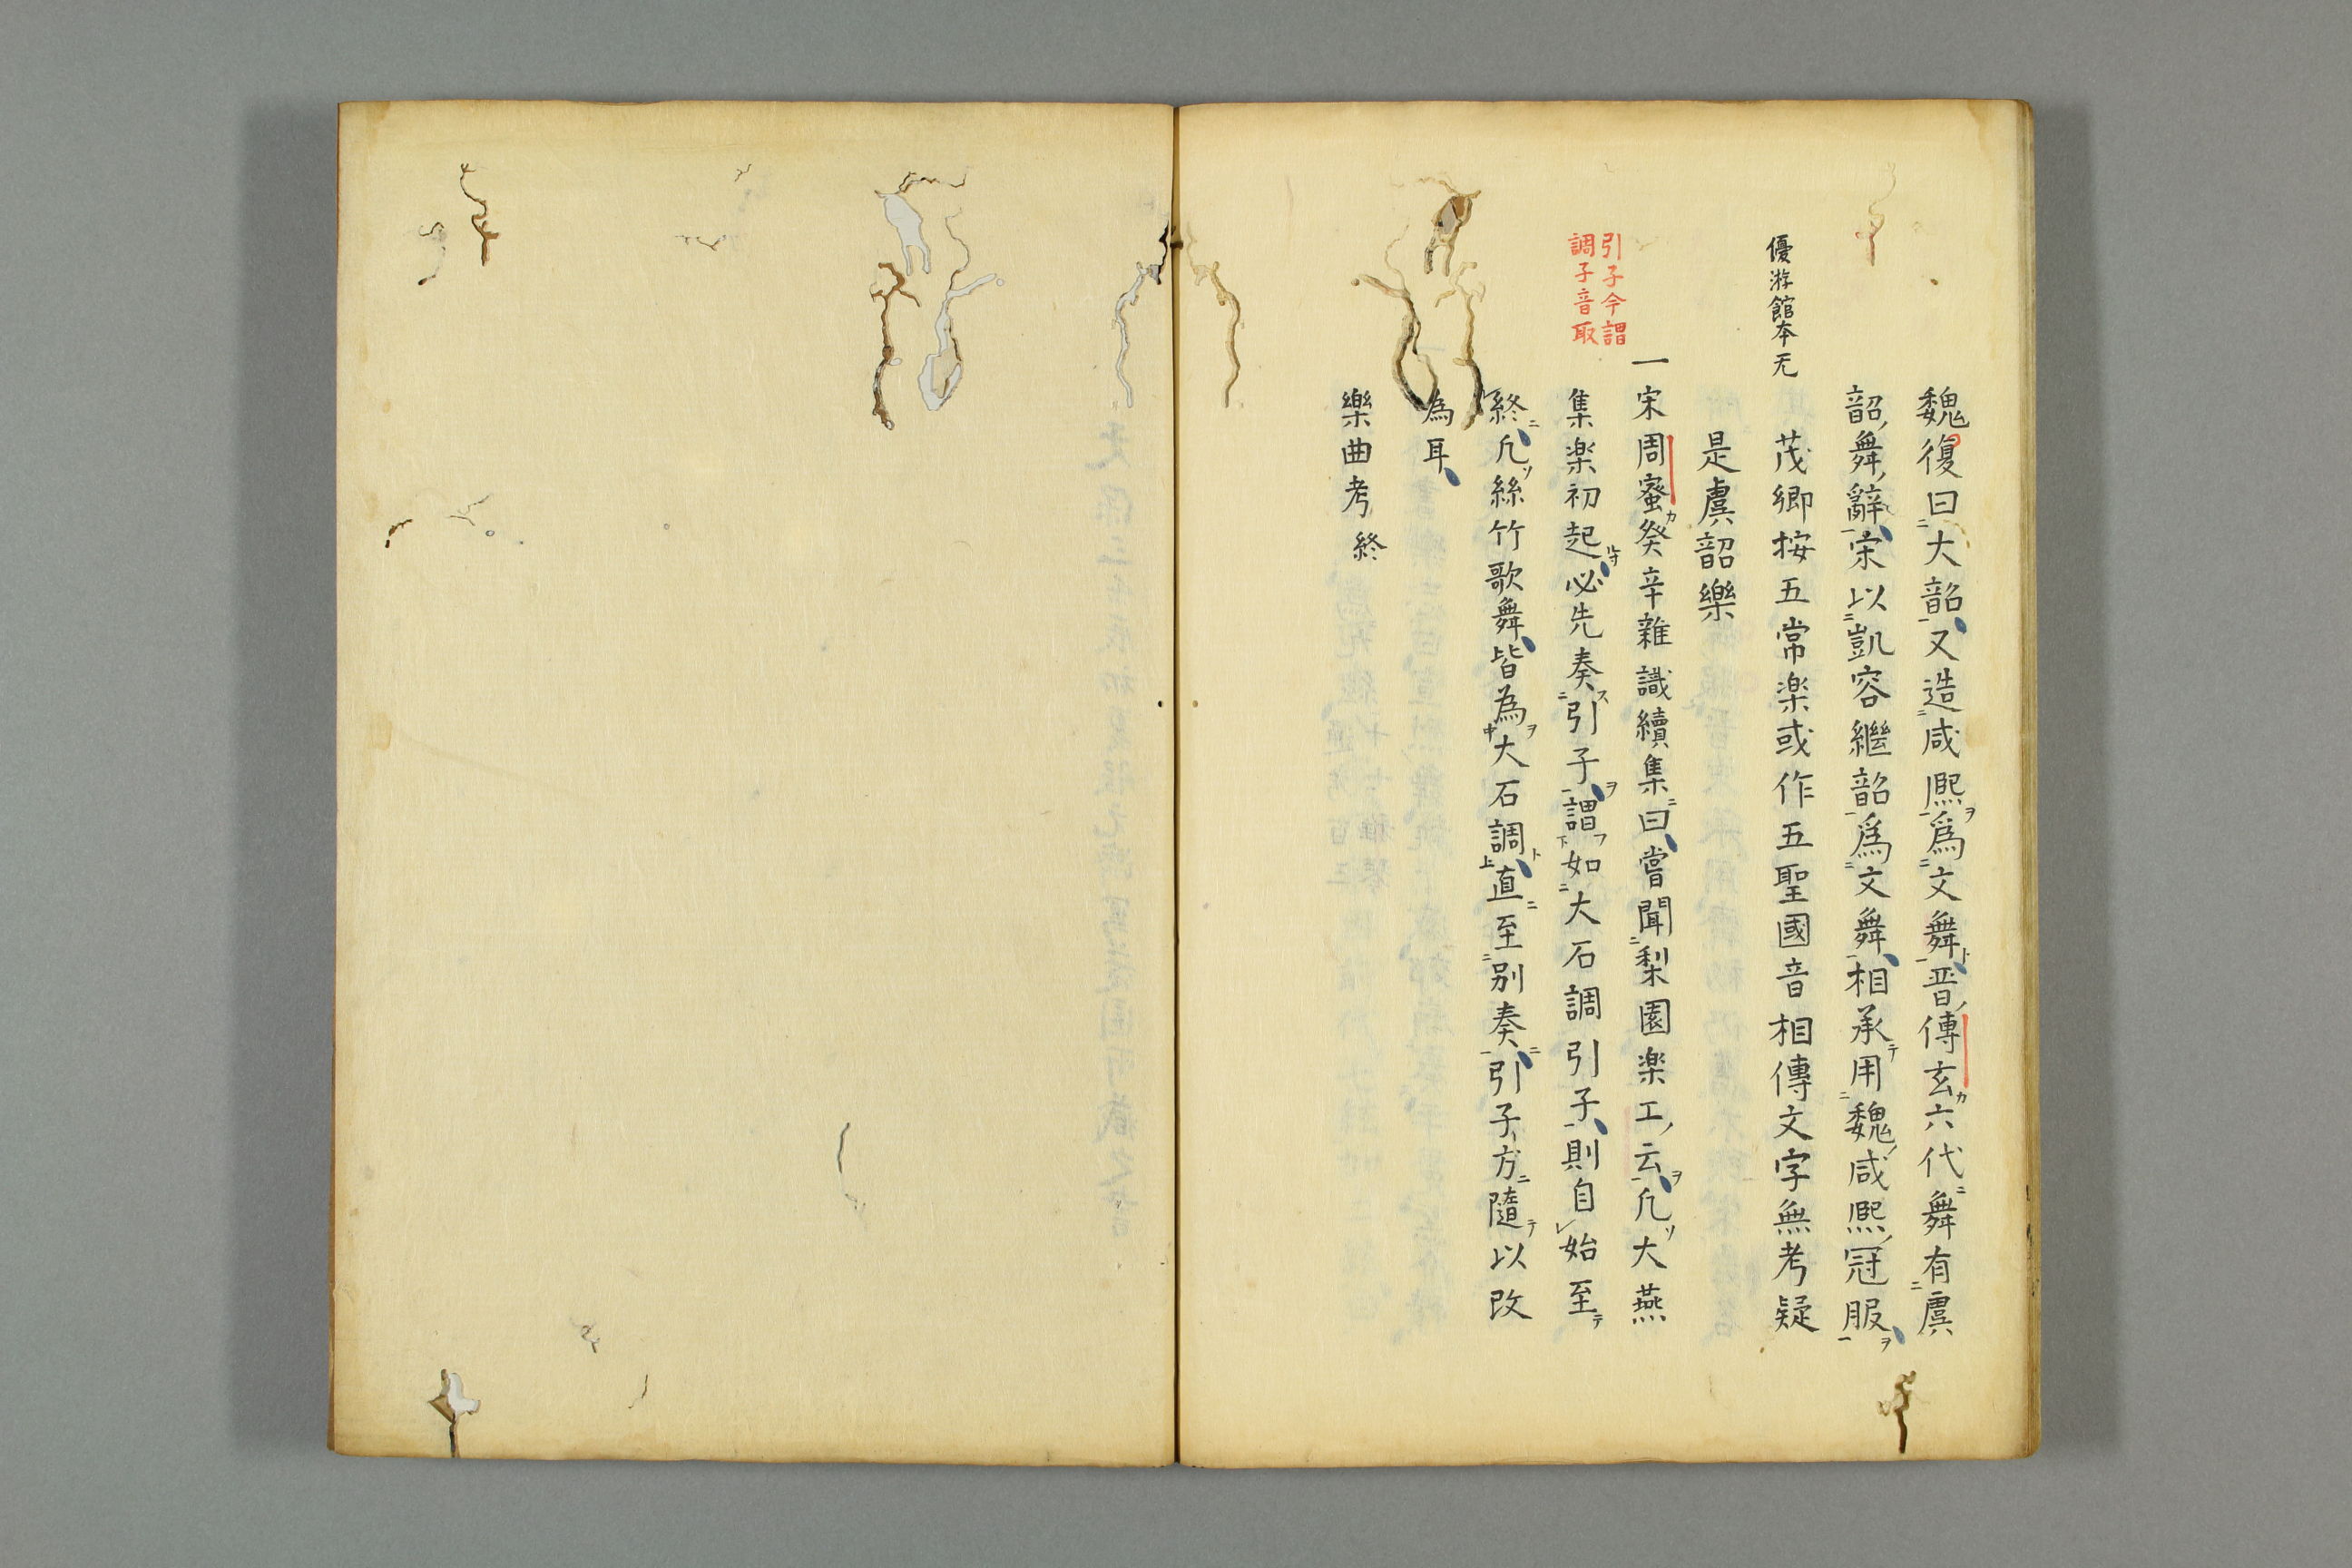 魏復曰大韶又造咸熈爲文舞晋傳玄六代舞有虞
韶舞辭宋以凱容繼韶爲文舞相承用魏咸熈冠服
優游館本无
茂卿按五常楽或作五聖國音相傳文字無考疑
是虞韶樂
一宋周蜜癸辛雜識續集曰嘗聞梨園楽工云凢大燕
引子今謂
調子音取
集楽初起必先奏引子謂如大石調引子則自始至
終凢絲竹歌舞皆為大石調直至別奏引子方隨以改
為耳
樂曲考終